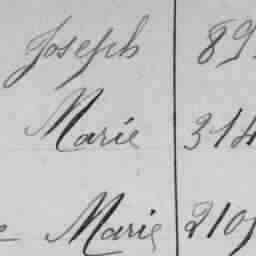 Joseph 89
Marie 314
Marie 210